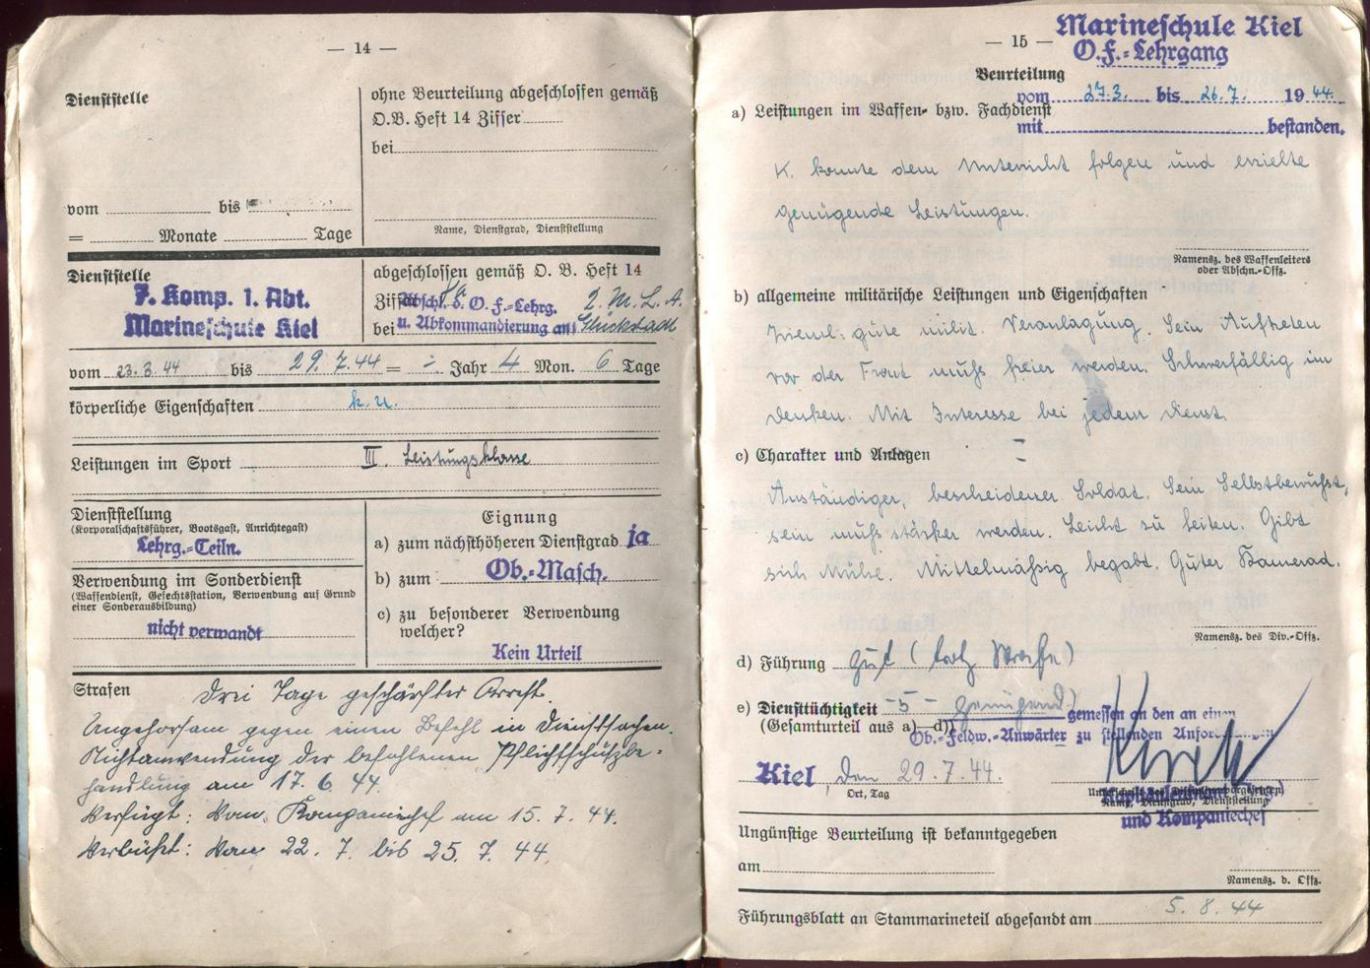 — 14 —
Dienststelle
ohne Beurteilung abgeschlossen gemäß
O.B. Heft 14 Ziffer
bei
vom bis
= Monate Tage
Name, Dienstgrad, Dienststellung
Dienststelle
7. Komp. 1. Abt.
Marineschule Kiel
abgeschlossen gemäß O. B. Heft 14
Ziff O. F.-Lehrg. 2. M. L. A.
bei u. Abkommandierung an: Glückstadt
vom 23.3.44 bis 29.7.44 = ÷ Jahr 4 Mon. 6 Tage
körperliche Eigenschaften k.u.
Leistungen im Sport III. Leistungsklasse
Dienststellung
(Korporalschaftsführer, Bootsgast, Anrichtegast)
Lehrg.-Teiln.
Verwendung im Sonderdienst
(Waffendienst, Gefechtsstation, Verwendung auf Grund
einer Sonderausbildung)
nicht verwandt
Eignung
a) zum nächsthöheren Dienstgrad ja
b) zum Ob.-Masch.
c) zu besonderer Verwendung
welcher?
Kein Urteil
Strafen Drei Tage geschärfter Arrest.
Ungehorsam gegen einen Befehl in Dienstsachen.
Nichtanwendung der befohlenen Pflichtschutzbe-
handlung am 17.6.44.
Verfügt: Vom Kompaniechef am 15.7.44.
Verbüßt: Vom 22.7. bis 25.7.44.
— 15 —
Marineschule Kiel
O.F.-Lehrgang
Beurteilung
vom 27.3. bis 26.7. 1944.
a) Leistungen im Waffen- bzw. Fachdienst
mit bestanden.
K. konnte dem Unterricht folgen und erzielte
genügende Leistungen.
Namensz. des Waffenleiters
oder Abschn.-Offz.
b) allgemeine militärische Leistungen und Eigenschaften
Zieml. gute milit. Veranlagung. Sein Auftreten
vor der Front muß freier werden. Schwerfällig im
Denken. Mit Interesse bei jedem Dienst.
c) Charakter und Anlagen
Anständiger, bescheidener Soldat. Sein Selbstbewußt-
sein muß stärker werden. Leicht zu leiten. Gibt
sich Mühe. Mittelmäßig begabt. Guter Kamerad.
Namensz. des Div.-Offz.
d) Führung Gut (trotz Strafe)
e) Diensttüchtigkeit -5- genügend gemessen an den an einen
(Gesamturteil aus a)—d)) Ob.-Feldw.-Anwärter zu stellenden
Kiel den 29.7.44.
Ort, Tag
Name, Dienstgrad, Dienststellung
und Kompaniechef
Ungünstige Beurteilung ist bekanntgegeben
am
Namensz. d. Offz.
Führungsblatt an Stammarineteil abgesandt am 5.8.44